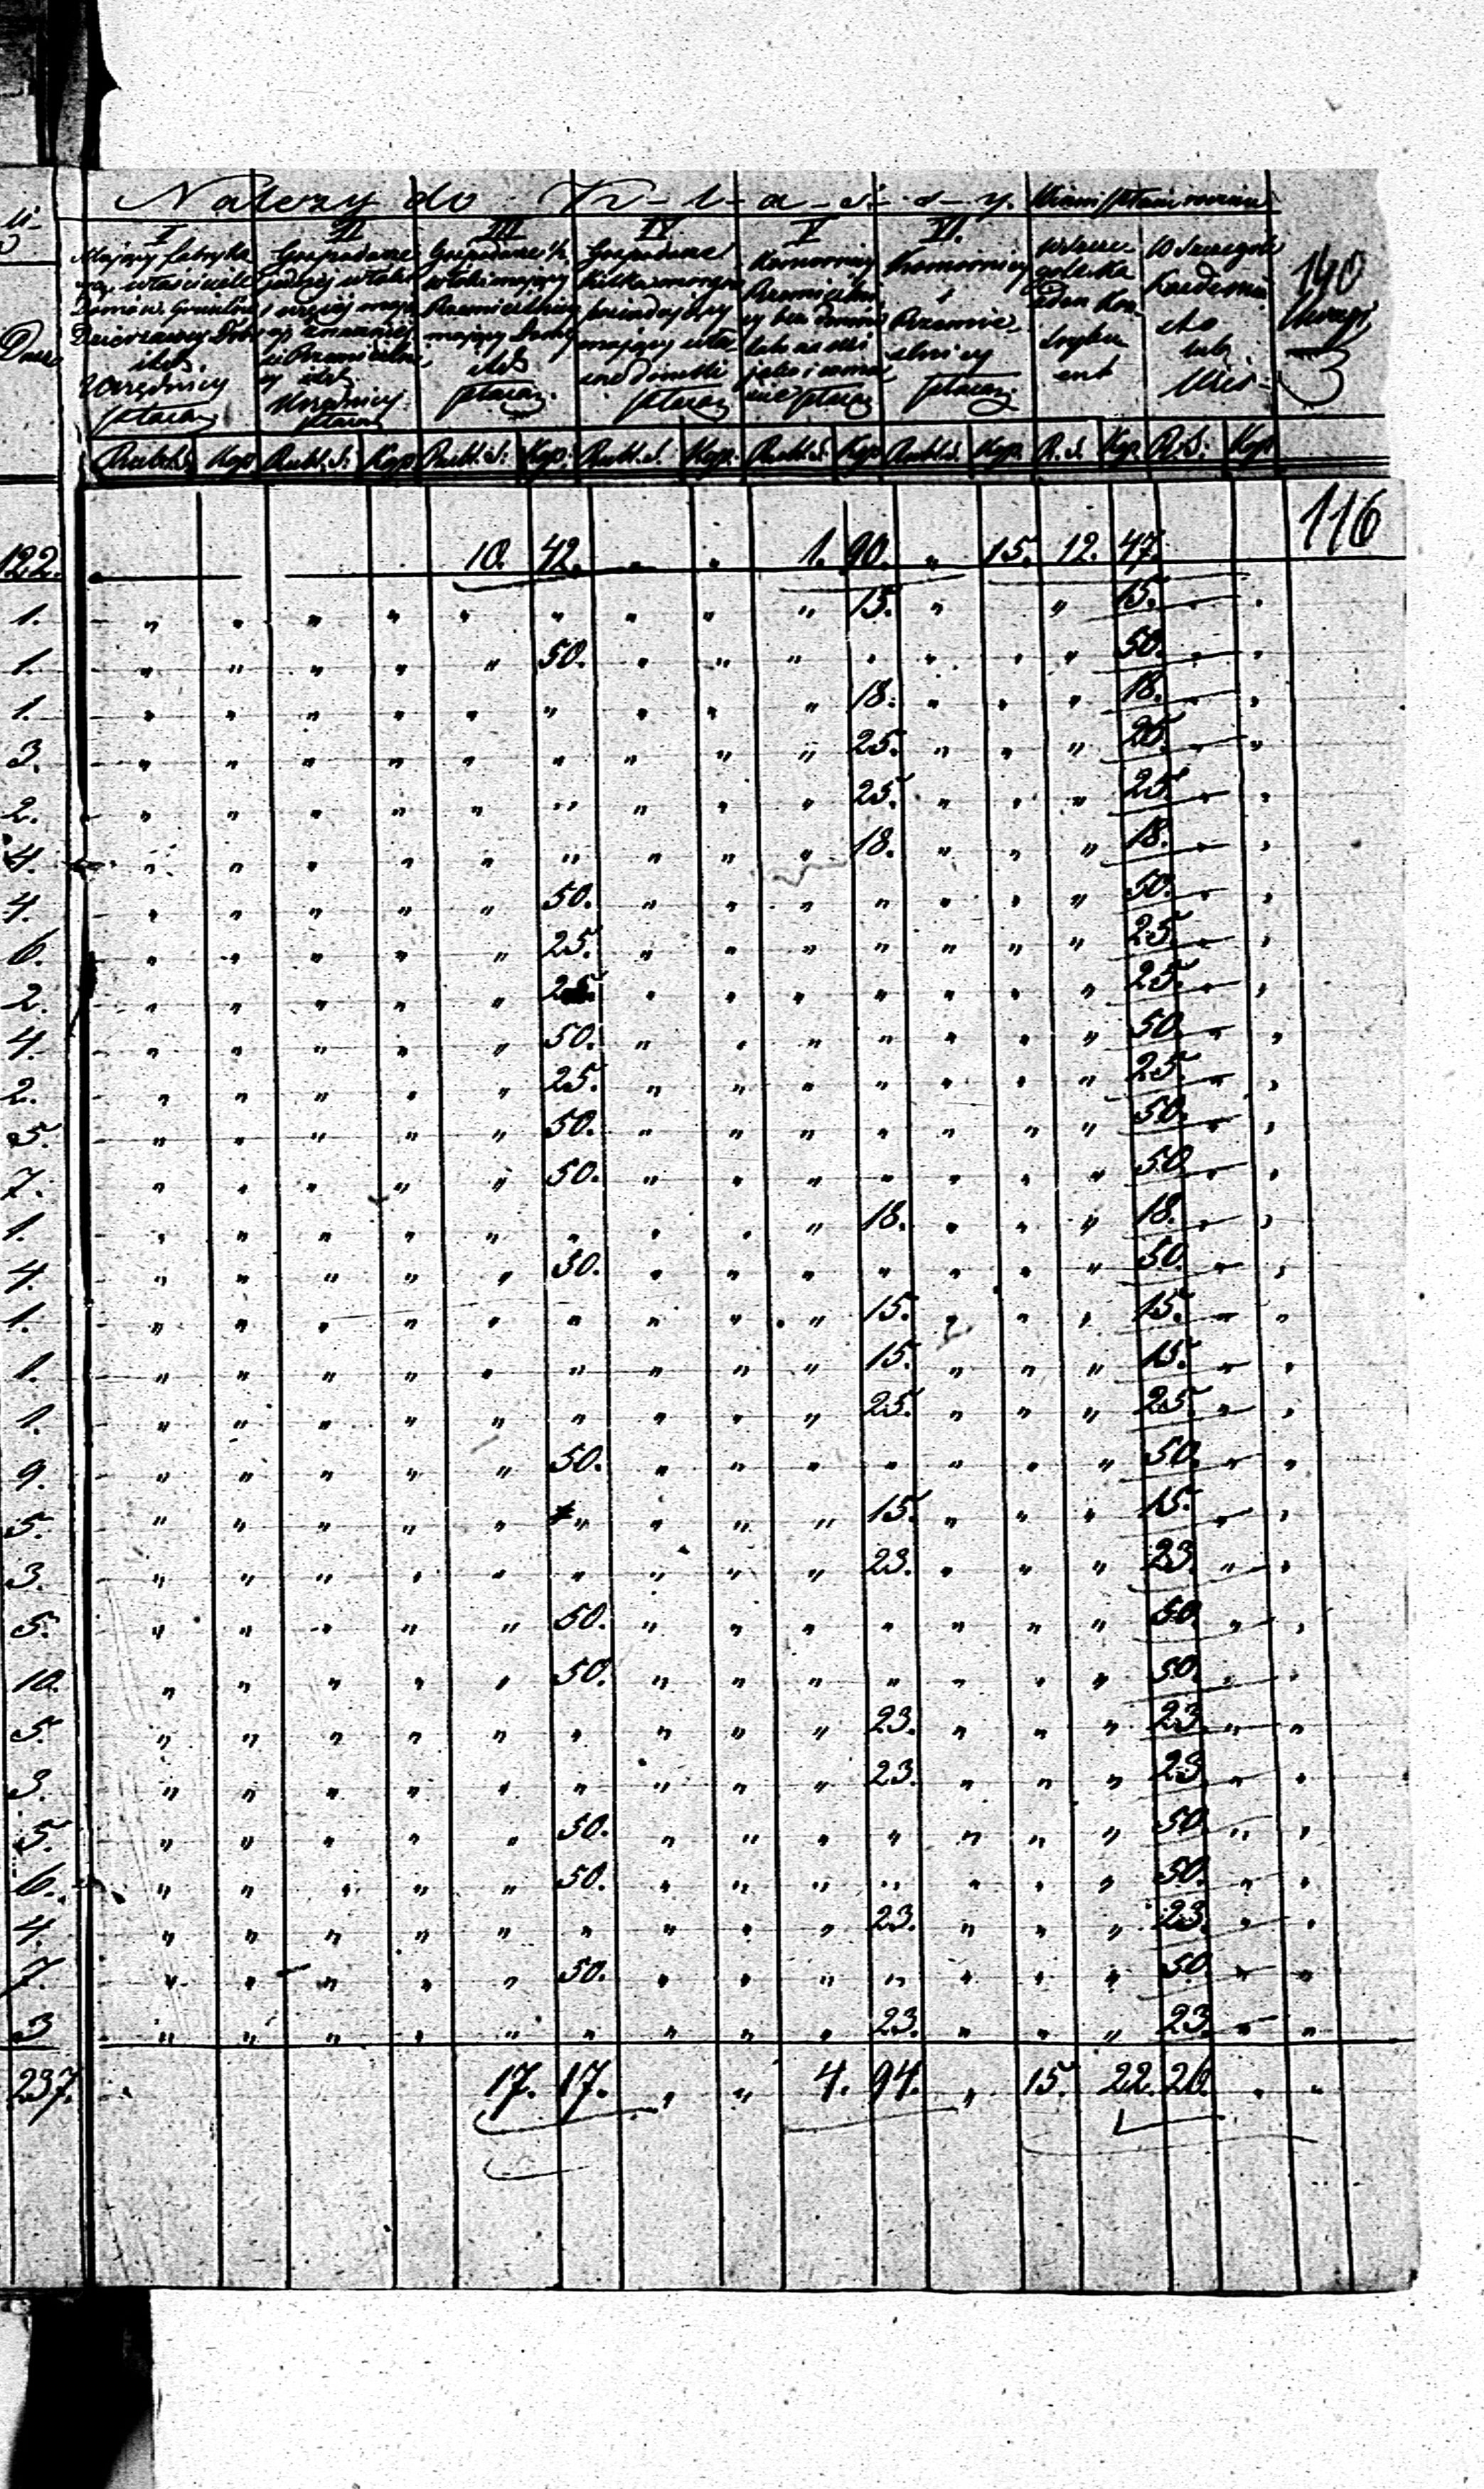 Należy do K-l-a-s-s-y. Winni płacić rocznie
I II III IV V VI.
Mający fabryki Gospodarze Gospodarze ½ Gospodarze Komornicy Komornicy W szcze- W szczególe
właściciele jednej włóki włóki mający kilka morgów i gólika
Domów. i więcej mają Rzemieślnicy posiadający bez domów Rzemie- jeden Kon-
mający mający wła- ślnicy trybu-
itd. itd. itd. sne domki płacą ent
Urzędnicy Urzędnicy płacą płacą płacą
płacą płacą
140
Uwagi
Dusze
Rubl.s. Kop Rubl.s: Kop Rubl.s: Kop. Rubl.s. Kop. Rubl.s Kop Rubl.s Kop. R.s. Kop. R.S: Kop
116
122. 10. 42. „ „ 1. 90. „ 15. 12. 47.
1. „ „ „ „ „ „ „ „ „ 15. „ „ 15. „ „
1. „ „ „ „ „ 50. „ „ „ „ „ „ „ 50. „ „
1. „ „ „ „ „ „ „ „ „ 18. „ „ „ 18. „ „
3. „ „ „ „ „ „ „ „ „ 25. „ „ „ 25. „ „
2. „ „ „ „ „ „ „ „ „ 25. „ „ „ 25. „ „
4. „ „ „ „ „ „ „ „ „ 18. „ „ „ 18. „ „
4. „ „ „ „ „ 50. „ „ „ „ „ „ „ 50. „ „
6. „ „ „ „ „ 25. „ „ „ „ „ „ „ 25. „ „
2. „ „ „ „ „ 25. „ „ „ „ „ „ „ 25. „ „
4. „ „ „ „ „ 50. „ „ „ „ „ „ „ 50. „ „
2. „ „ „ „ „ 25. „ „ „ „ „ „ „ 25. „ „
5. „ „ „ „ „ 50. „ „ „ „ „ „ „ 50. „ „
7. „ „ „ „ „ 50. „ „ „ „ „ „ „ 50. „ „
1. „ „ „ „ „ „ „ „ „ 18. „ „ „ 18. „ „
4. „ „ „ „ „ 50. „ „ „ „ „ „ „ 50. „ „
1. „ „ „ „ „ „ „ „ „ 15. „ „ „ 15. „ „
1. „ „ „ „ „ „ „ „ „ 15. „ „ „ 15. „ „
1. „ „ „ „ „ „ „ „ „ 25. „ „ „ 25. „ „
9. „ „ „ „ „ 50. „ „ „ „ „ „ „ 50. „ „
5. „ „ „ „ „ „ „ „ „ 15. „ „ „ 15. „ „
3. „ „ „ „ „ „ „ „ „ 23. „ „ „ 23. „ „
5. „ „ „ „ „ 50. „ „ „ „ „ „ „ 50. „ „
10. „ „ „ „ „ 50. „ „ „ „ „ „ „ 50. „ „
5. „ „ „ „ „ „ „ „ „ 23. „ „ „ 23. „ „
3. „ „ „ „ „ „ „ „ „ 23. „ „ „ 23. „ „
5. „ „ „ „ „ 50. „ „ „ „ „ „ „ 50. „ „
6. „ „ „ „ „ 50. „ „ „ „ „ „ „ 50. „ „
4. „ „ „ „ „ „ „ „ „ 23. „ „ „ 23. „ „
7. „ „ „ „ „ 50. „ „ „ „ „ „ „ 50. „ „
3 „ „ „ „ „ „ „ „ „ 23. „ „ „ 23. „ „
237. 17. 17. „ „ 4. 94. „ 15. 22. 26. „ „